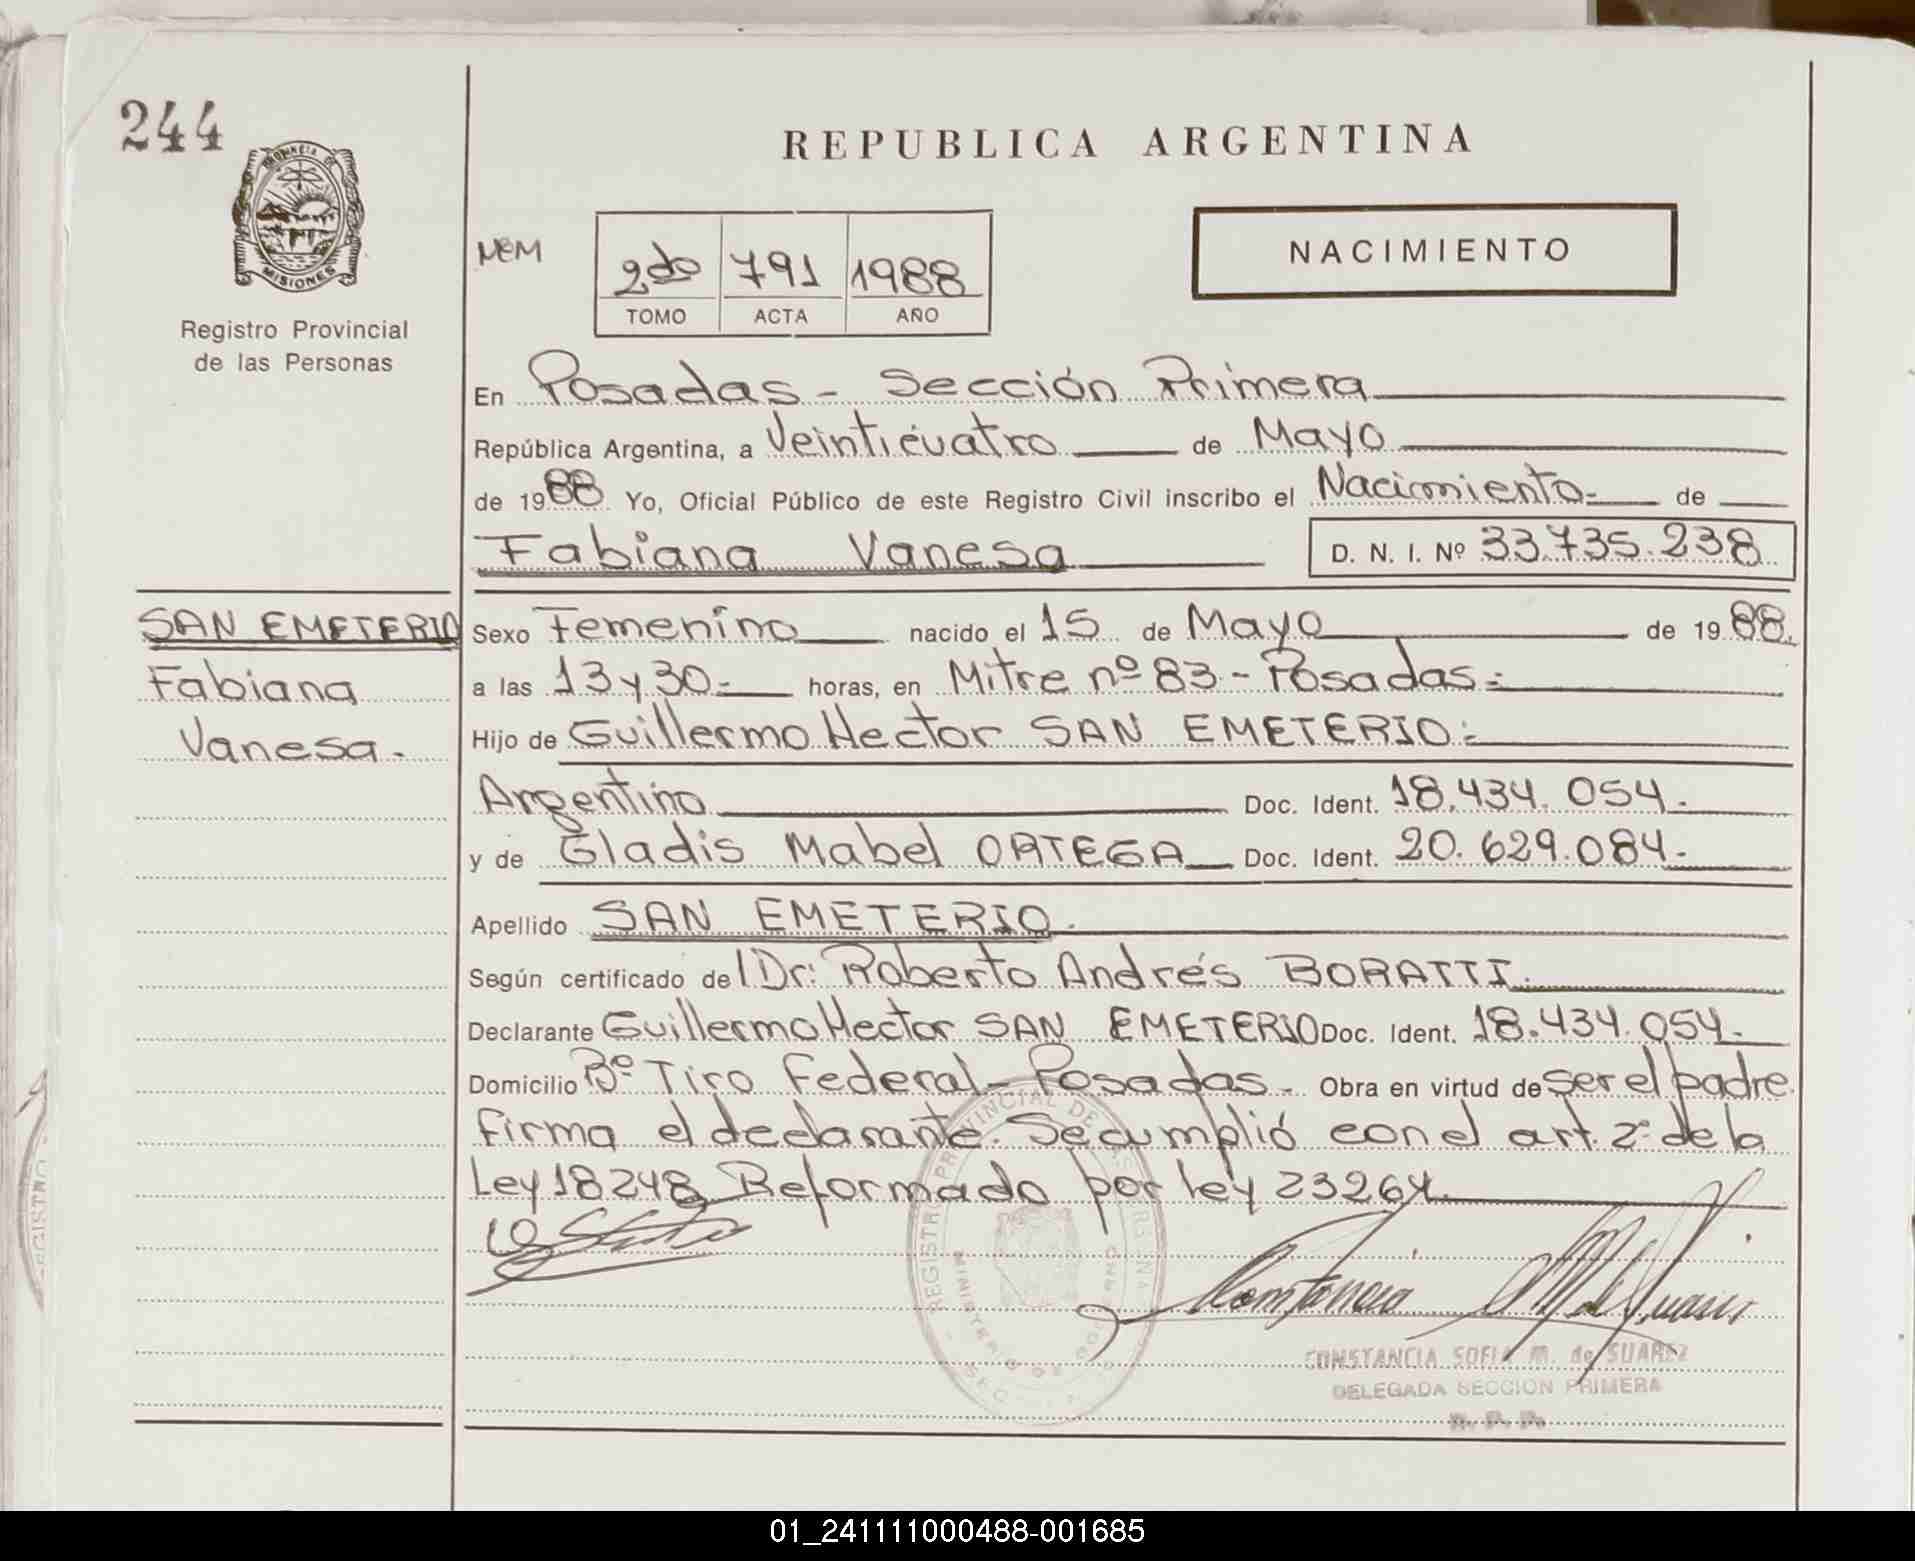 244
REPUBLICA ARGENTINA
PROVINCIA DE
MISIONES
Registro Provincial
de las Personas
NACIMIENTO
2do 791 1988
TOMO ACTA AÑO
En Posadas - Sección Primera
República Argentina, a Veinticuatro de Mayo
de 1988. Yo, Oficial Público de este Registro Civil inscribo el Nacimiento- de
Fabiana Vanesa D. N. I. Nº 33.735.238
SAN EMETERIO
Fabiana
Vanesa.-
Sexo Femenino nacido el 15 de Mayo de 1988.
a las 13 y 30.- horas, en Mitre nº 83 - Posadas.-
Hijo de Guillermo Hector SAN EMETERIO.-
Argentino Doc. Ident. 18.434.054.-
y de Gladis Mabel ORTEGA Doc. Ident. 20.629.084.-
Apellido SAN EMETERIO.
Según certificado del Dr: Roberto Andrés BORATTI.
Declarante Guillermo Hector SAN EMETERIO Doc. Ident. 18.434.054.-
Domicilio Bº Tiro Federal - Posadas.- Obra en virtud de ser el padre
firma el declarante. Se cumplió con el art. 2º de la
Ley 18248 Reformado por ley 23264.
REGISTRO PROVINCIAL DE LAS PERSONAS
MINISTERIO DE GOBIERNO
CONSTANCIA SOFIA M. de SUAREZ
DELEGADA SECCION PRIMERA
R. P. P.
01_241111000488-001685